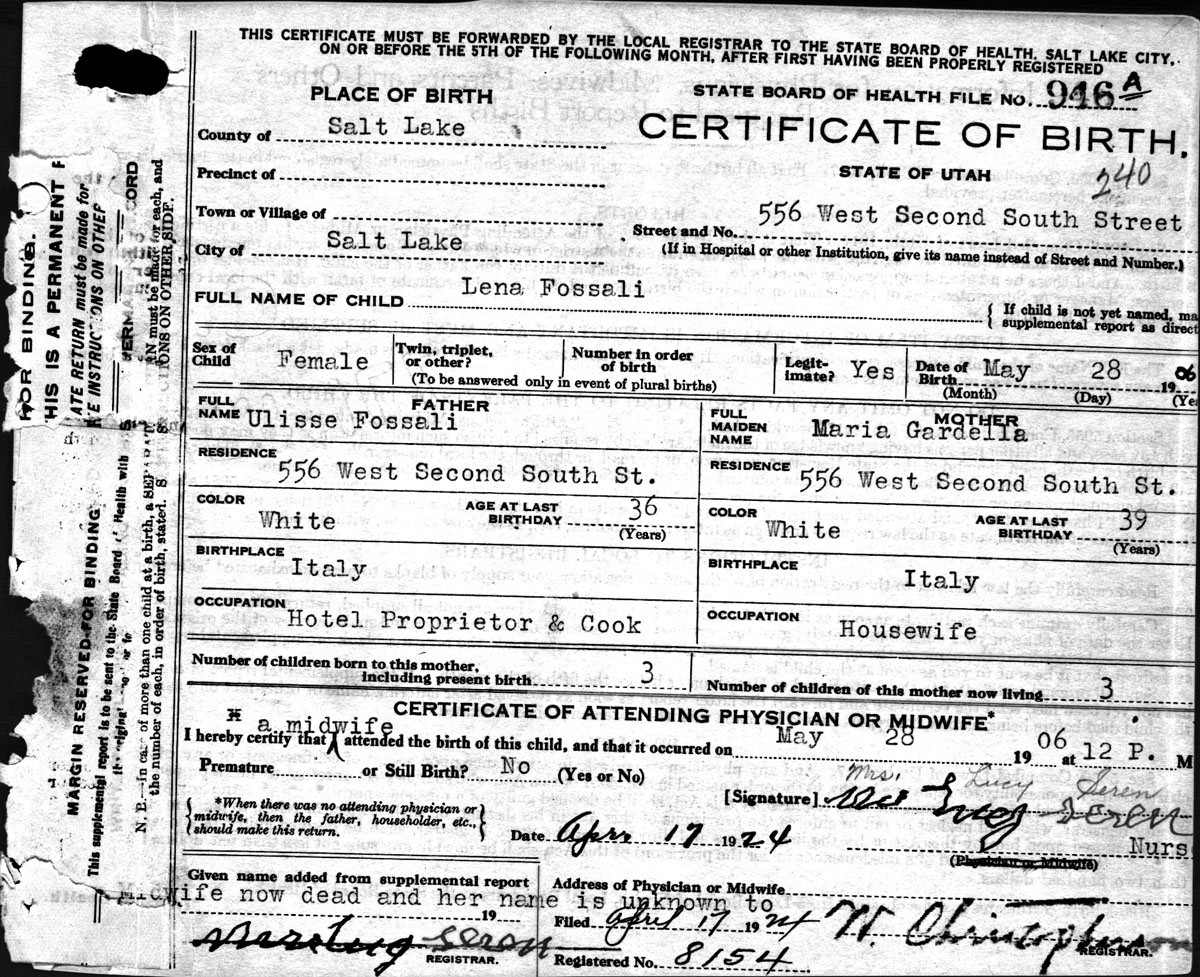 THIS CERTIFICATE MUST BE FORWARDED BY THE LOCAL REGISTRAR TO THE STATE BOARD OF HEALTH, SALT LAKE CITY,
ON OR BEFORE THE 5TH OF THE FOLLOWING MONTH, AFTER FIRST HAVING BEEN PROPERLY REGISTERED
PLACE OF BIRTH
STATE BOARD OF HEALTH FILE NO. 946 A
County of Salt Lake
CERTIFICATE OF BIRTH.
Precinct of
STATE OF UTAH
240
Town or Village of
556 West Second South Street
Street and No.
City of Salt Lake
(If in Hospital or other Institution, give its name instead of Street and Number.)
FULL NAME OF CHILD Lena Fossali
If child is not yet named, ma
supplemental report as direct
Sex of Child Female
Twin, triplet, or other?
Number in order of birth
(To be answered only in event of plural births)
Legitimate? Yes
Date of Birth May 28 1906
(Month) (Day) (Ye
FATHER
FULL NAME Ulisse Fossali
MOTHER
FULL MAIDEN NAME Maria Gardella
RESIDENCE 556 West Second South St.
RESIDENCE 556 West Second South St.
COLOR White
AGE AT LAST BIRTHDAY 36 (Years)
COLOR White
AGE AT LAST BIRTHDAY 39 (Years)
BIRTHPLACE Italy
BIRTHPLACE Italy
OCCUPATION Hotel Proprietor & Cook
OCCUPATION Housewife
Number of children born to this mother, including present birth 3
Number of children of this mother now living 3
CERTIFICATE OF ATTENDING PHYSICIAN OR MIDWIFE*
a midwife
I hereby certify that attended the birth of this child, and that it occurred on May 28 1906 at 12 P. M
Premature or Still Birth? No (Yes or No)
Mrs. Lucy Seren
[Signature]
*When there was no attending physician or midwife, then the father, householder, etc., should make this return.
Date Apr. 17 1924
Nurs
(Physician or Midwife)
Given name added from supplemental report
Address of Physician or Midwife
Midwife now dead and her name is unknown to
19
Filed April 17 1924
W. Christopherson
REGISTRAR.
REGISTRAR.
Registered No. 8154
FOR BINDING.
THIS IS A PERMANENT R
ATE RETURN must be made for
E INSTRUCTIONS ON OTHER
MARGIN RESERVED FOR BINDING
This supplemental report is to be sent to the State Board of Health with
the original
N. B.—In case of more than one child at a birth, a SEPARAT
the number of each, in order of birth, stated.
CORD
must be made for each, and
TIONS ON OTHER SIDE.